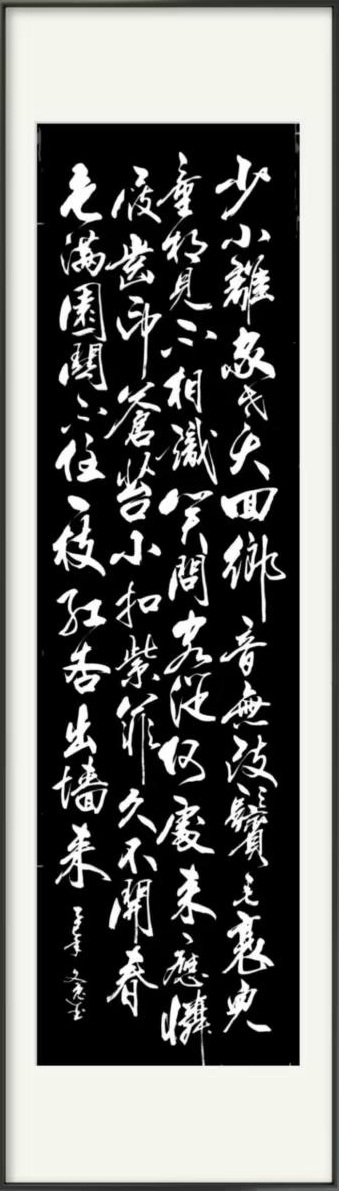 少小離家老大回鄉音無改鬢毛衰兒
童相見不相識笑問客從何處來應憐
屐齒印蒼苔小扣柴扉久不開春
色滿園關不住一枝紅杏出墻來